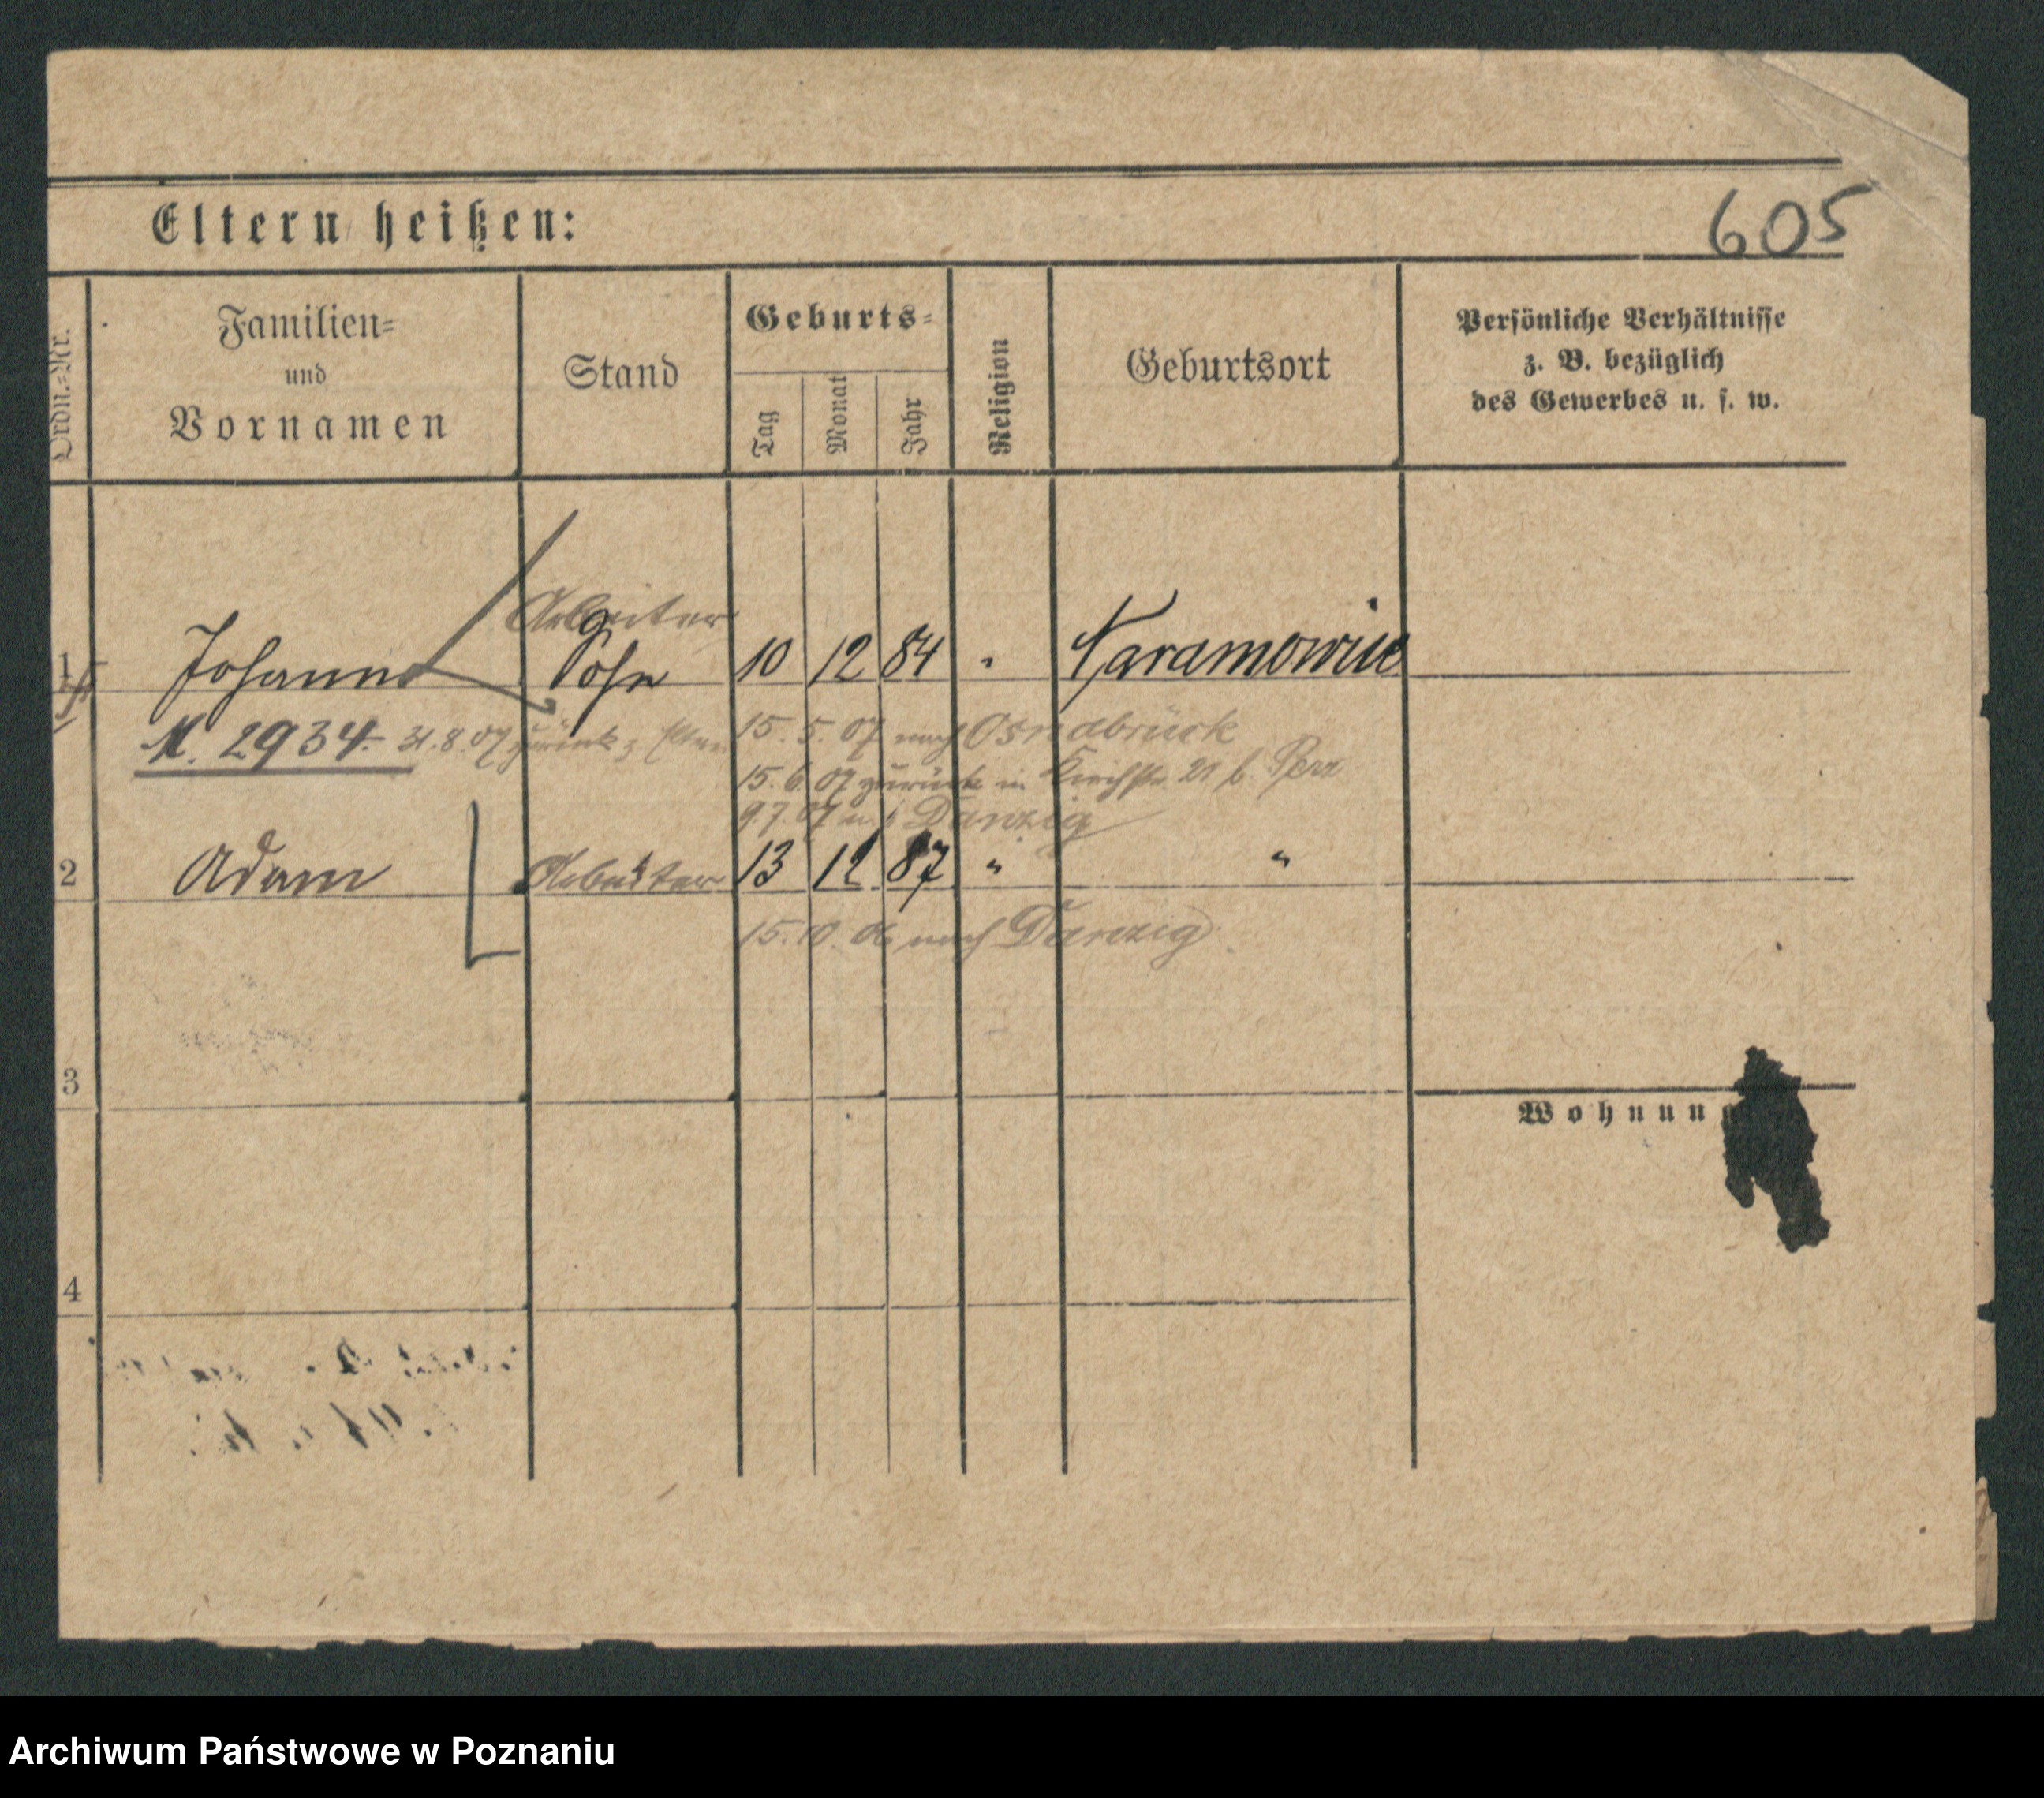 Eltern heißen:
605
Ordn.-Nr.
Familien-
und
Vornamen
Stand
Geburts-
Tag
Monat
Jahr
Religion
Geburtsort
Persönliche Verhältnisse
z. B. bezüglich
des Gewerbes u. s. w.
Arbeiter
1 Johann Sohn 10 12 84 " Naramowice
M. 2934. 31.8.07 zurück z. 15. 5. 07 nach Osnabrück
15. 6. 07 zurück in Kirchstr. 21 b.
9.7.07 nach Danzig
2 Adam Arbeiter 13 12 87 " "
15. 10. 06 nach Danzig
3
Wohnung
4
Archiwum Państwowe w Poznaniu